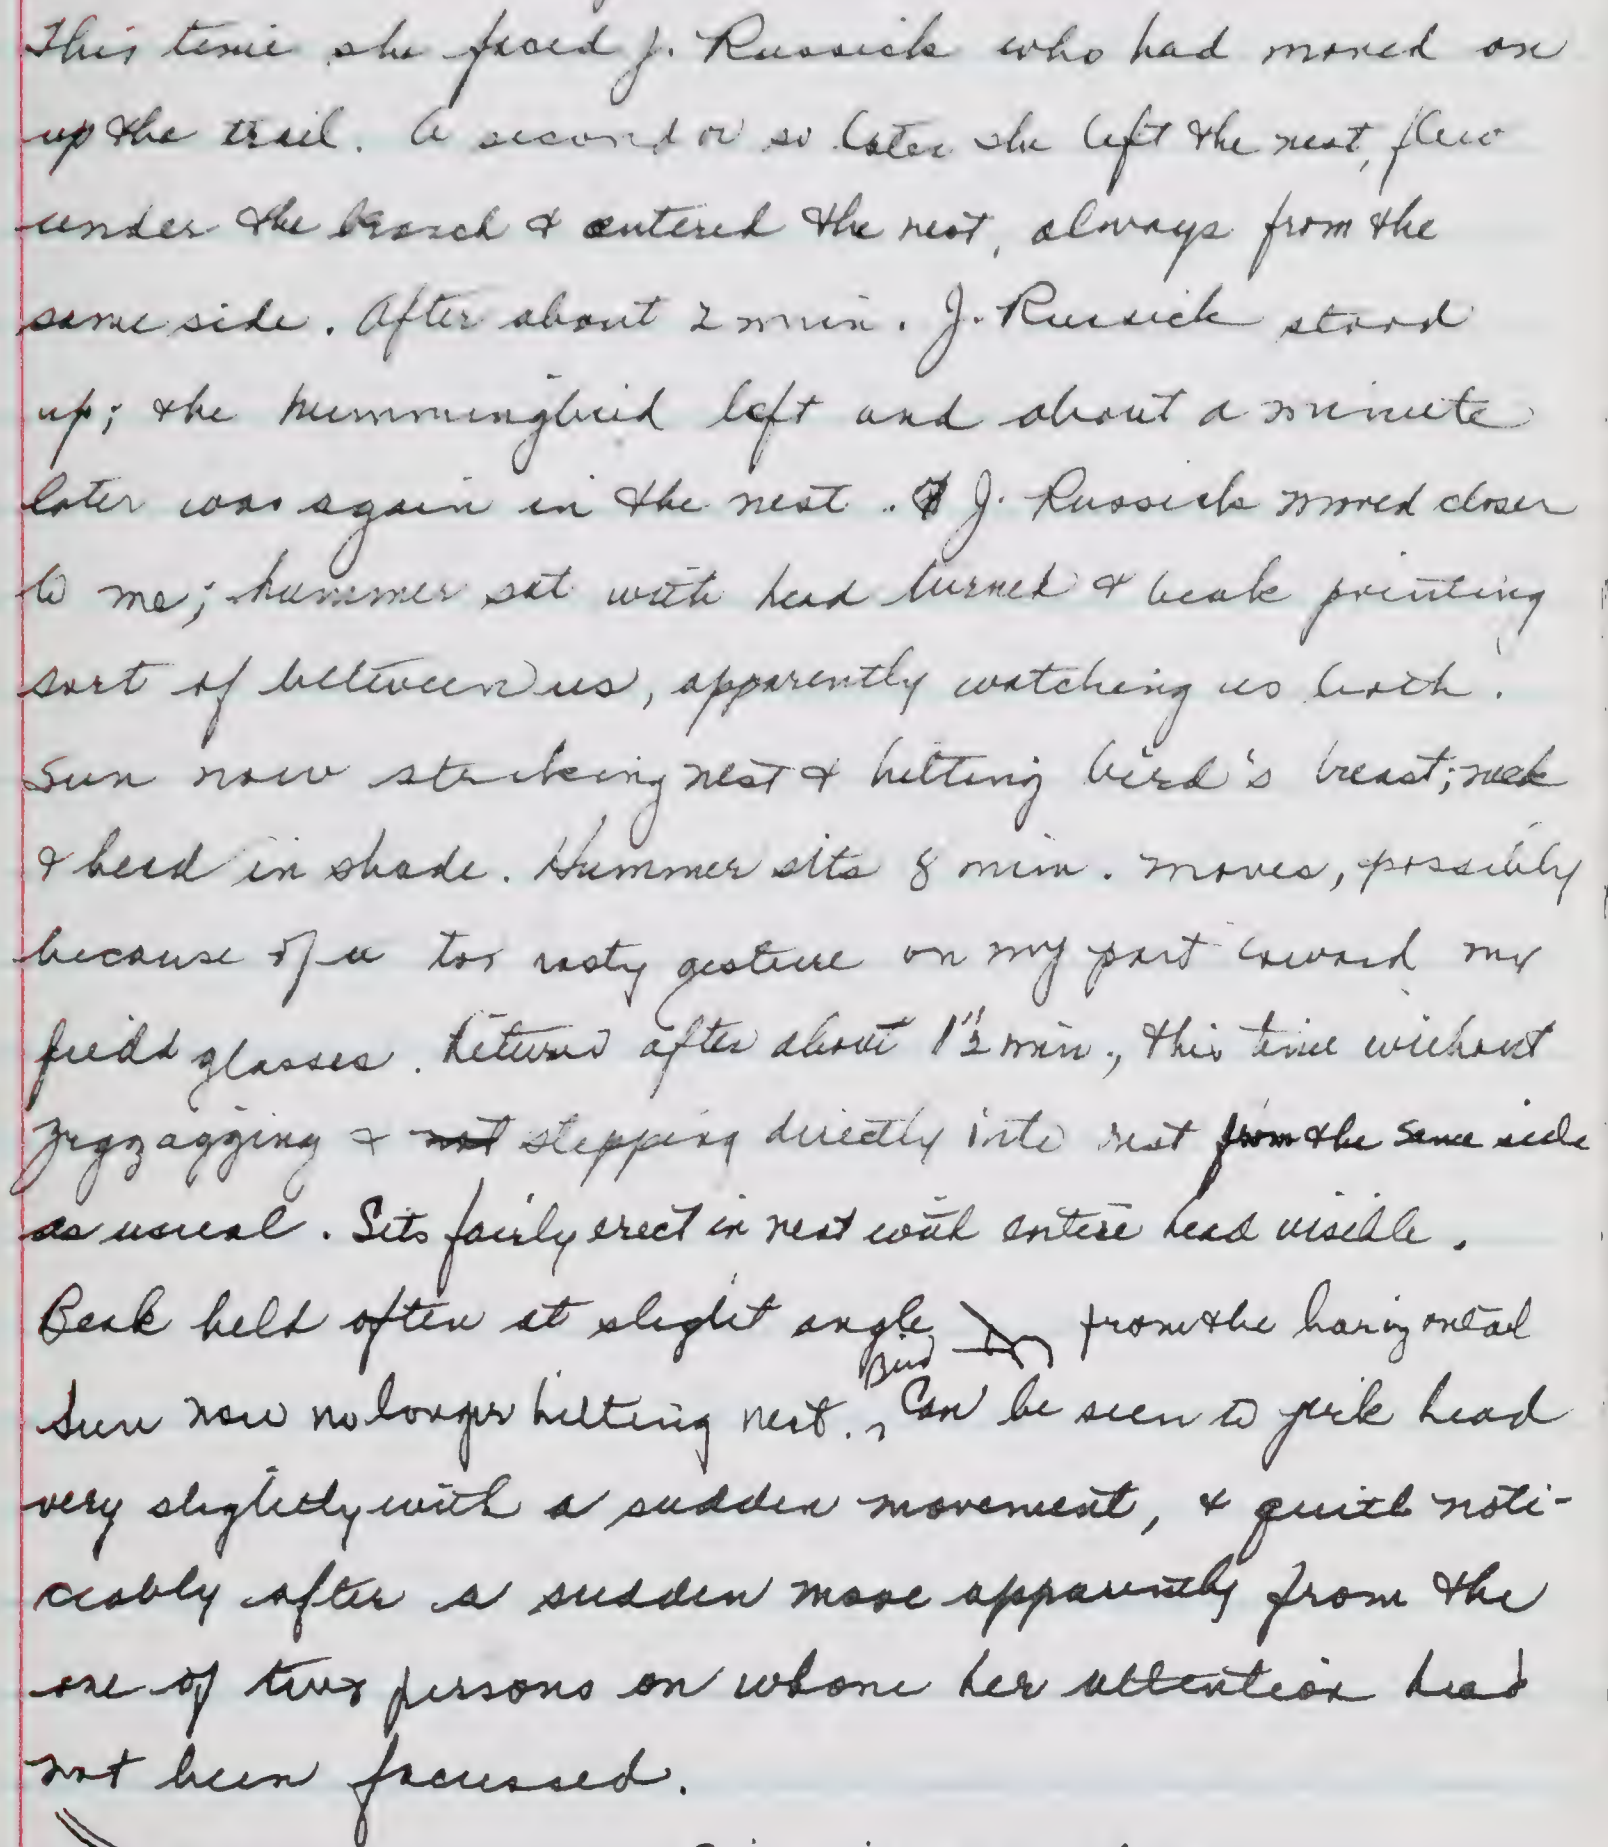 This time she faced J. Russick who had moved on
up the trail. A second or so later she left the nest, flew
under the branch & entered the nest, always from the
same side. After about 2 min. J. Russick stood
up; the hummingbird left and about a minute
later was again in the nest. J. Russick moved closer
to me; hummer sat with head turned & beak pointing
sort of between us, apparently watching us both.
Sun now striking nest & hitting bird's breast; neck
& head in shade. Hummer sits 8 min. moves, possibly
because of a too hasty gesture on my part toward my
field glasses. Returned after about 1½ min., this time without
zigzagging & not stepping directly into nest from the same side
as usual. Sits fairly erect in nest with entire head visible.
Beak held often at slight angle from the horizontal
Sun now no longer hitting nest. Bird Can be seen to jerk head
very slightly with a sudden movement, & quite noti-
ceably after a sudden move apparently from the
one of two persons on whom her attention had
not been focussed.